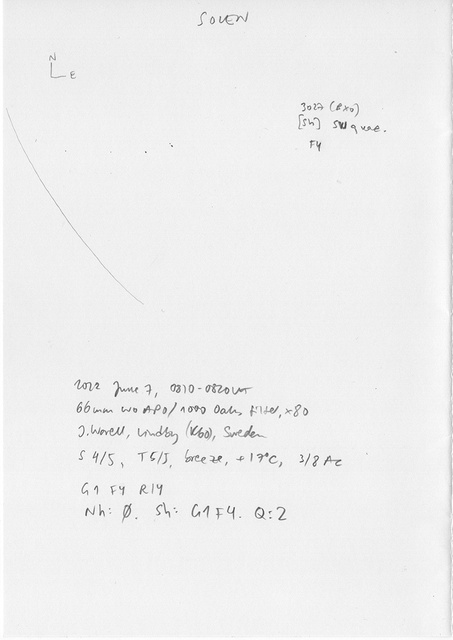 SOLEN
N
E
3027 (BXO)
[SH] SW quad.
F4
2022 June 7, 0810-0820UT
66mm WO APO/1000 Oaks Filter, x80
J. Warell, Lindby (K60), Sweden
S 4/5, T5/5, breeze, +17°C, 3/8 Ac
G1 F4 R14
NH: Ø. SH: G1 F4. Q:2